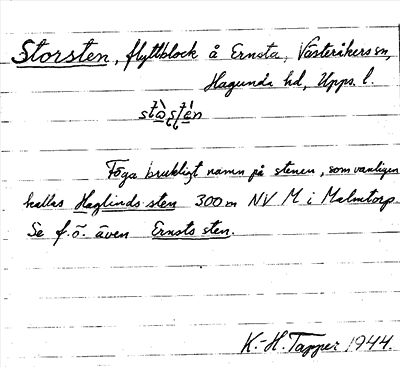 Storsten, flyttblock å Ernsta, Västeråkers sn,
Hagunda hd, Upps. l.
Föga brukligt namn på stenen, som vanligen
kallas Haglinds sten 300 m NV M i Malmtorp.
Se f. ö. även Ernsts sten.
K.-H. Tapper 1944.